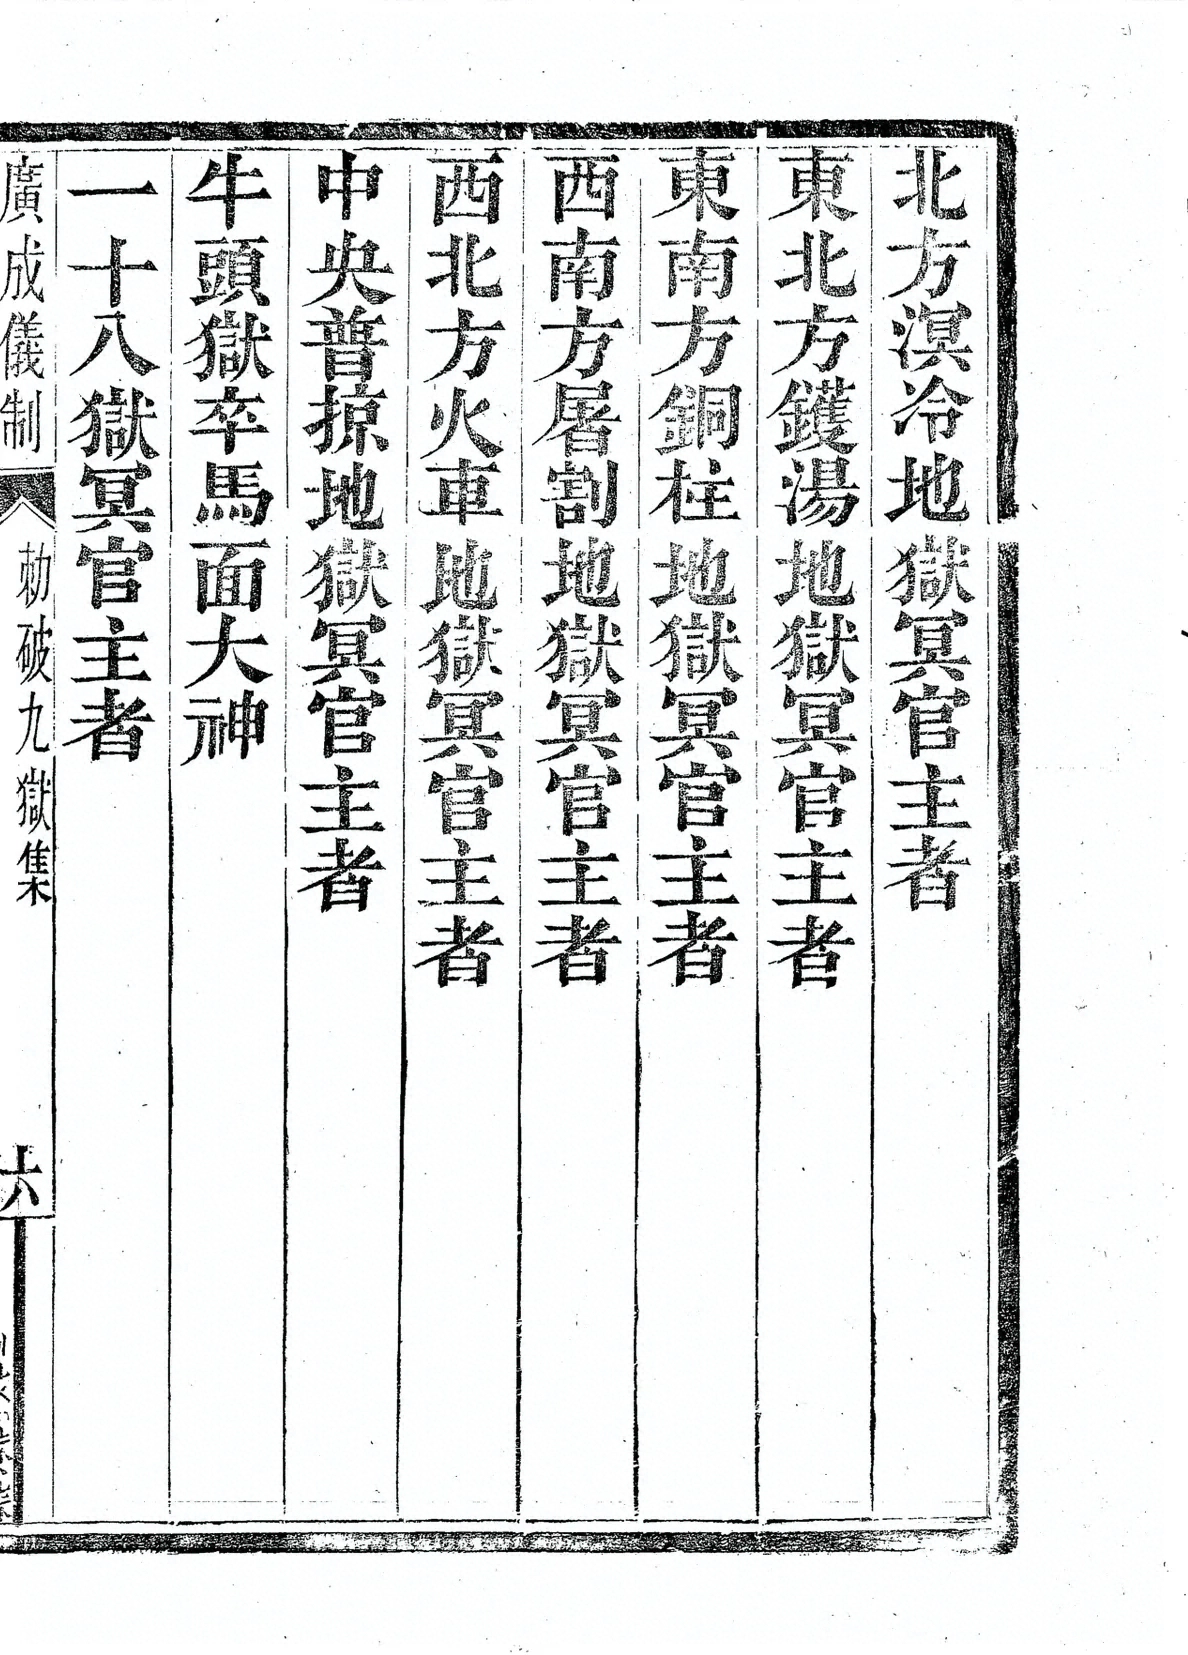 北方溟冷地獄冥官主者
東北方鑊湯地獄冥官主者
東南方銅柱地獄冥官主者
西南方屠割地獄冥官主者
西北方火車地獄冥官主者
中央普掠地獄冥官主者
牛頭獄卒馬面大神
一十八獄冥官主者
廣成儀制 勅破九獄集 六